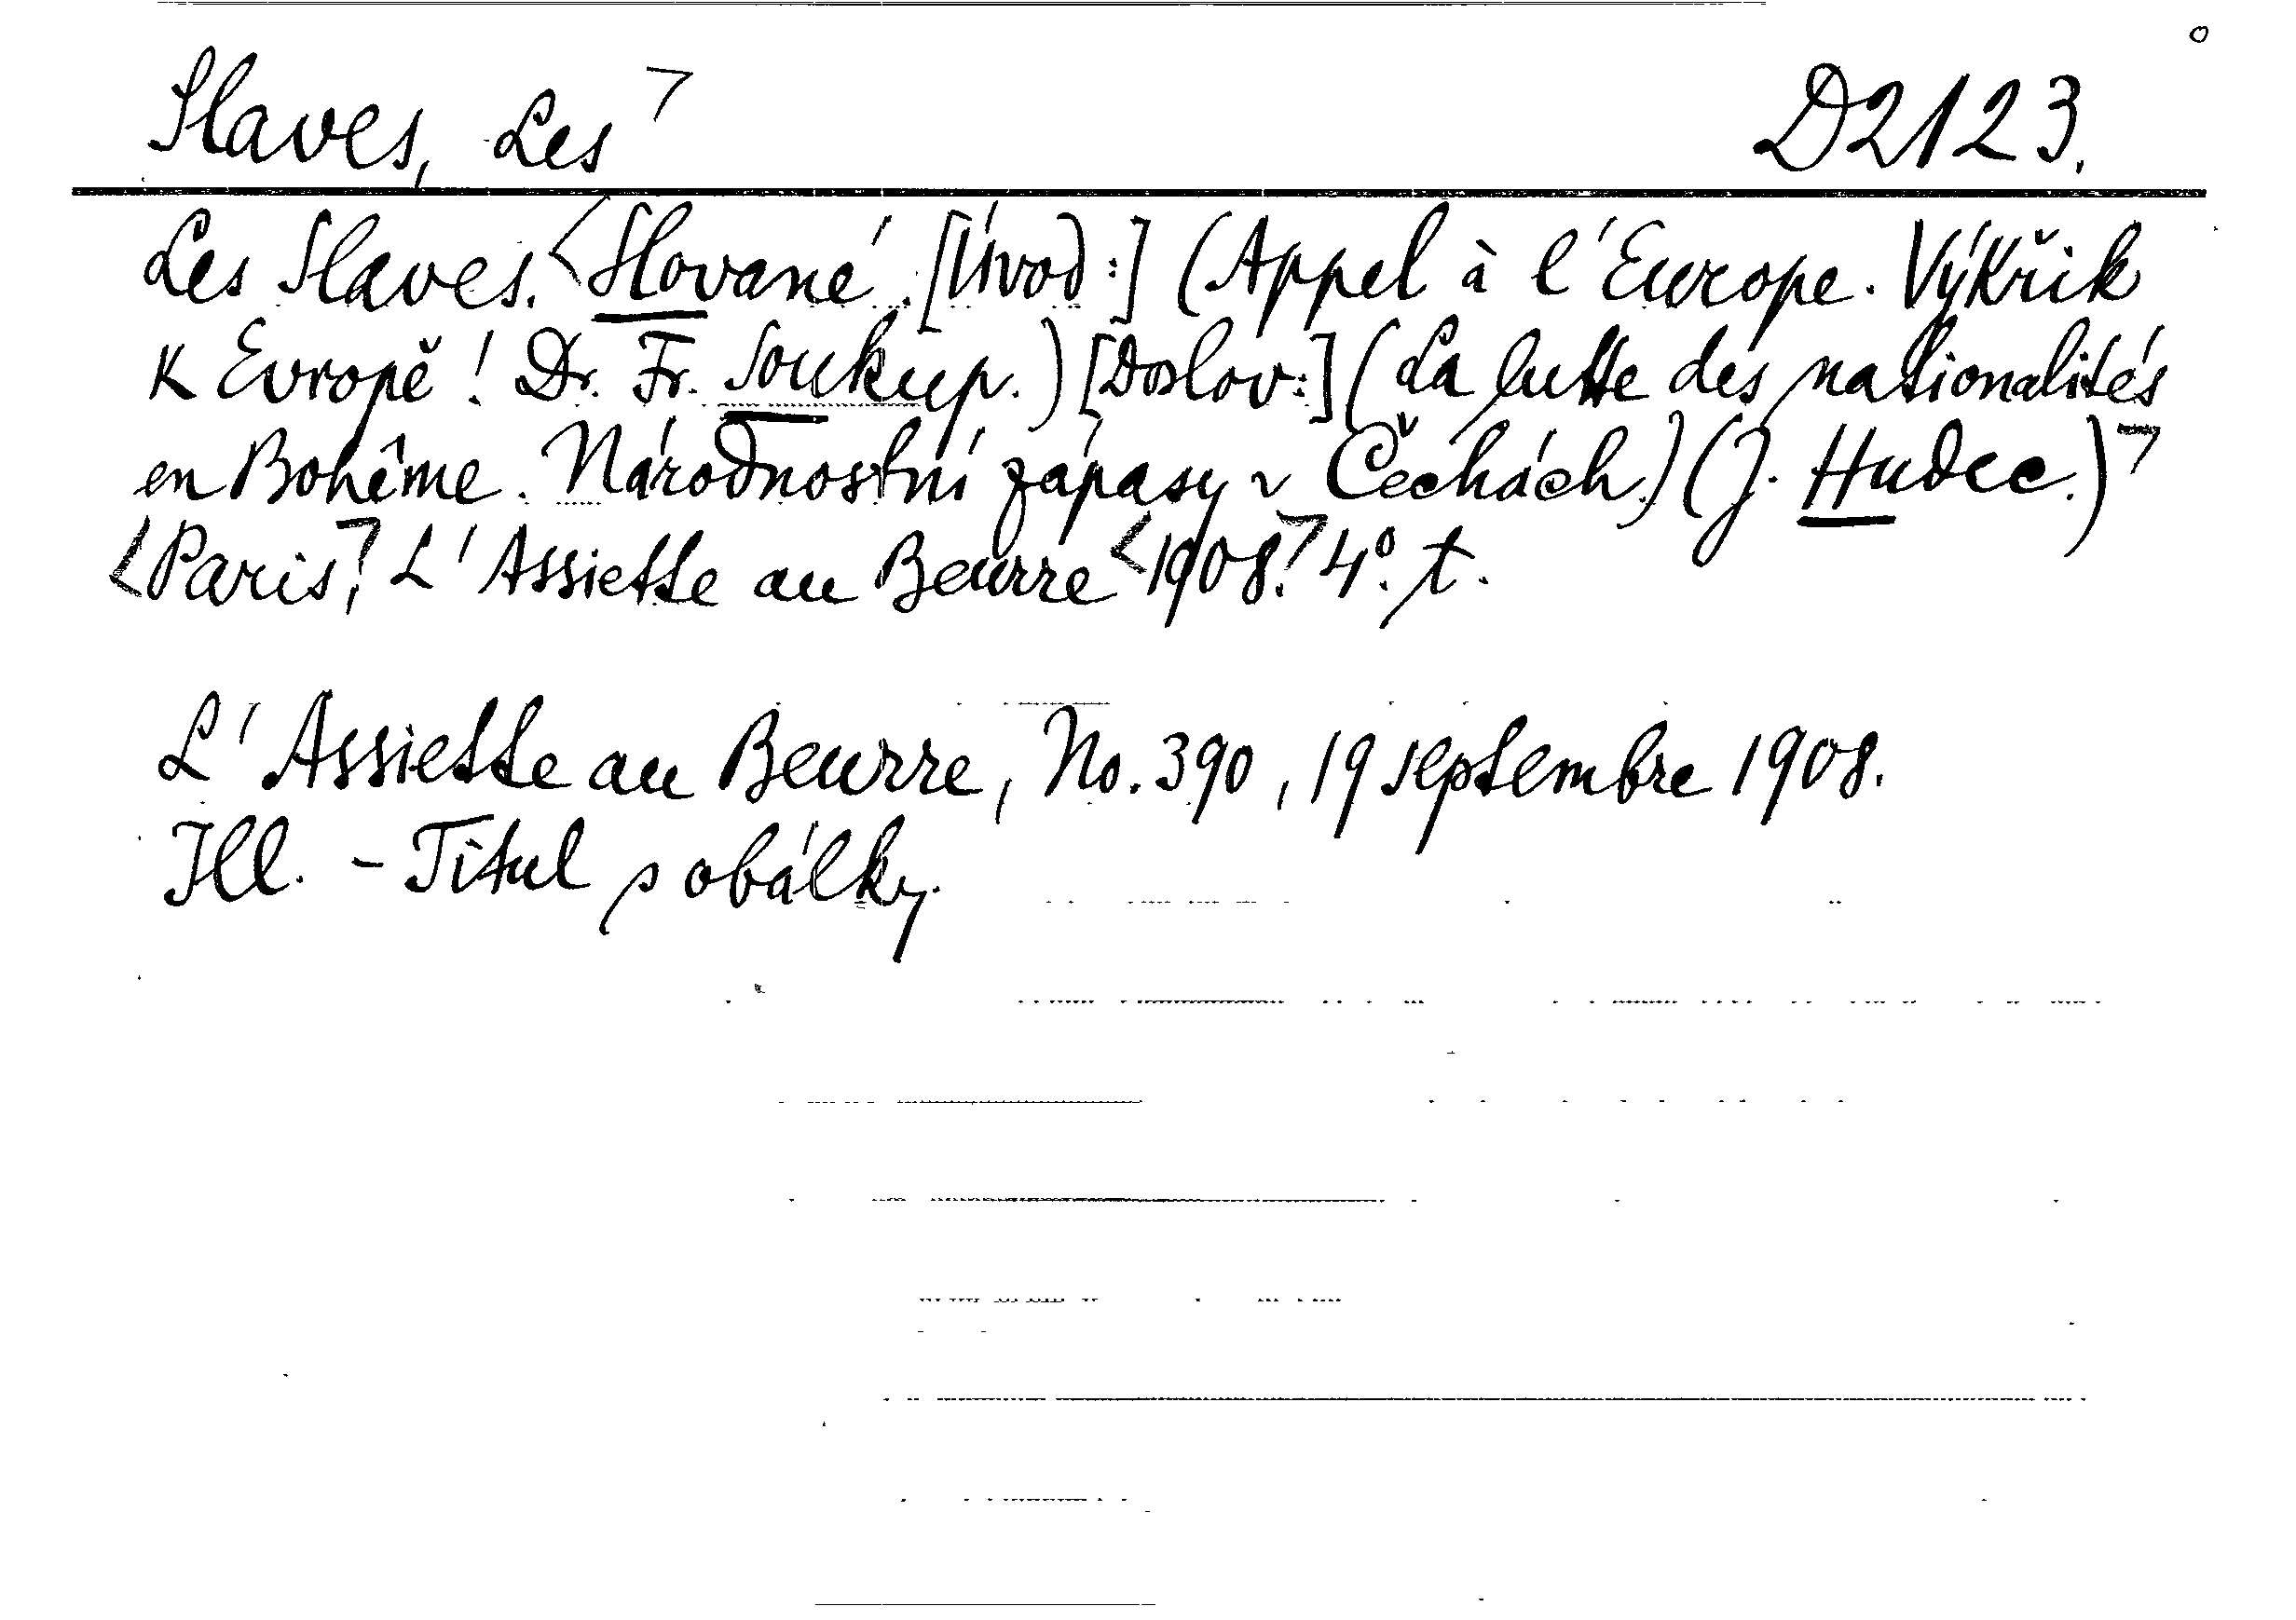 Slaves, Les ⌝ D2123.
Les Slaves. <Slované. [Úvod:] (Appel à l'Europe. Výkřik
k Evropě! Dr. Fr. Soukup.) [Doslov:] (La lutte des nationalités
en Bohême. Národnostní zápasy v Čechách.) (J. Hudec.)⌝
<Paris,⌝ L'Assiette au Beurre <1908.⌝ 4°. t.
L'Assiette au Beurre, No. 390, 19 septembre 1908.
Ill. - Titul s obálky.